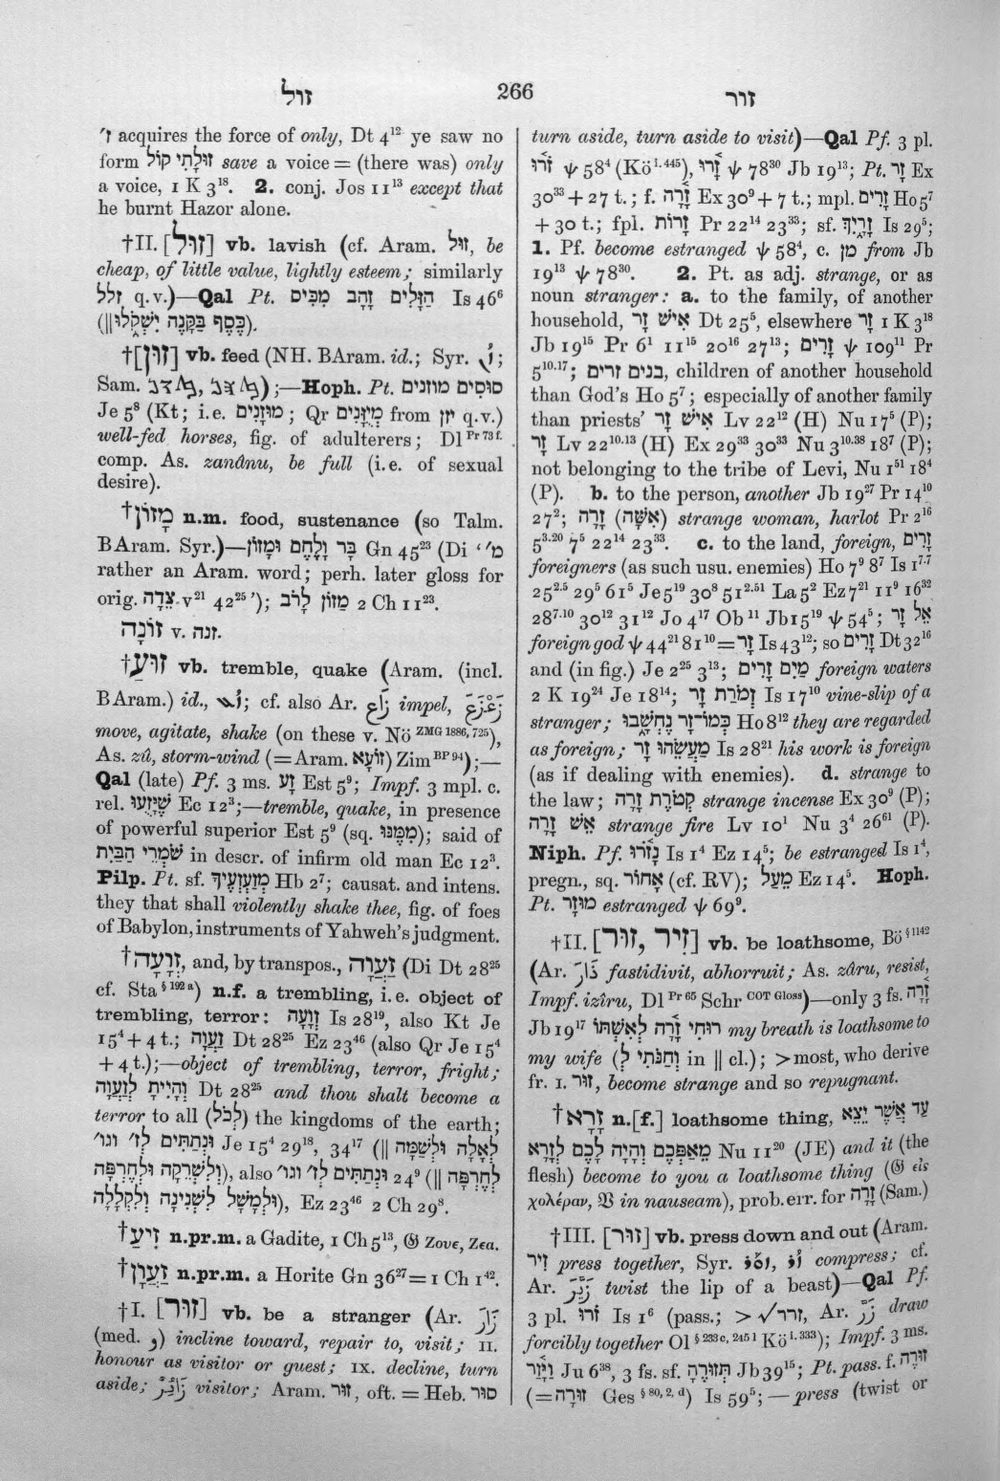 זול
266
זור
'ז acquires the force of only, Dt 4¹² ye saw no
form זוּלָתִי קוֹל save a voice = (there was) only
a voice, 1 K 3¹⁸. 2. conj. Jos 11¹³ except that
he burnt Hazor alone.
†II. [זוּל] vb. lavish (cf. Aram. זוּל, be
cheap, of little value, lightly esteem; similarly
זלל q.v.)—Qal Pt. הַזָּלִים זָהָב מִכִּיס Is 46⁶
(‖כֶּסֶף בַּקָּנֶה יִשְׁקֹלוּ).
†[זוּן] vb. feed (NH. BAram. id.; Syr.
Sam. );—Hoph. Pt. סוּסִים מוזנים
Je 5⁸ (Kt; i.e. מוּזָנִים; Qr מְיֻזָּנִים from יזן q.v.)
well-fed horses, fig. of adulterers; Dl Pr 73 f.
comp. As. zanânu, be full (i.e. of sexual
desire).
†מָזוֹן n.m. food, sustenance (so Talm.
BAram. Syr.)—בָּר וָלֶחֶם וּמָזוֹן Gn 45²³ (Di ‘מ'
rather an Aram. word; perh. later gloss for
orig. צֵדָה v²¹ 42²⁵’); מָזוֹן לָרֹב 2 Ch 11²³.
זוֹנָה v. זנה.
†זוּעַ vb. tremble, quake (Aram. (incl.
BAram.) id., ; cf. also Ar. زَاعَ impel, زَعْزَعَ
move, agitate, shake (on these v. Nö ZMG 1886, 725),
As. zû, storm-wind (=Aram. זוֹעָא) Zim BP 94);—
Qal (late) Pf. 3 ms. זָע Est 5⁹; Impf. 3 mpl. c.
rel. שֶׁיָּזֻעוּ Ec 12³;—tremble, quake, in presence
of powerful superior Est 5⁹ (sq. מִמֶּנּוּ); said of
שֹׁמְרֵי הַבַּיִת in descr. of infirm old man Ec 12³.
Pilp. Pt. sf. מְזַעְזְעֶיךָ Hb 2⁷; causat. and intens.
they that shall violently shake thee, fig. of foes
of Babylon, instruments of Yahweh's judgment.
†זְוָעָה, and, by transpos., זַעֲוָה (Di Dt 28²⁵
cf. Sta § 192 a) n.f. a trembling, i.e. object of
trembling, terror: זְוָעָה Is 28¹⁹, also Kt Je
15⁴ + 4 t.; זַעֲוָה Dt 28²⁵ Ez 23⁴⁶ (also Qr Je 15⁴
+ 4 t.);—object of trembling, terror, fright;
וְהָיִיתָ לְזַעֲוָה Dt 28²⁵ and thou shalt become a
terror to all (לְכֹל) the kingdoms of the earth;
וּנְתַתִּים לְז' וגו' Je 15⁴ 29¹⁸, 34¹⁷ (‖ לְאָלָה וּלְשַׁמָּה
וְלִשְׁרֵקָה וּלְחֶרְפָּה), also וּנְתַתִּים לז' וגו' 24⁹ (‖ לְחֶרְפָּה
וּלְמָשָׁל לִשְׁנִינָה וְלִקְלָלָה), Ez 23⁴⁶ 2 Ch 29⁸.
†זִיעַ n.pr.m. a Gadite, 1 Ch 5¹³, 𝔊 Ζουε, Ζεα.
†זַעֲוָן n.pr.m. a Horite Gn 36²⁷ = 1 Ch 1⁴².
†I. [זוּר] vb. be a stranger (Ar. زَارَ
(med. و) incline toward, repair to, visit; II.
honour as visitor or guest; IX. decline, turn
aside; زَائِرٌ visitor; Aram. זוּר, oft. = Heb. סוּר
turn aside, turn aside to visit)—Qal Pf. 3 pl.
זֹ֫רוּ ψ 58⁴ (Kö i. 445), זָ֫רוּ ψ 78³⁰ Jb 19¹³; Pt. זָר Ex
30³³ + 27 t.; f. זָרָה Ex 30⁹ + 7 t.; mpl. זָרִים Ho 5⁷
+ 30 t.; fpl. זָרוֹת Pr 22¹⁴ 23³³; sf. זָרָיִךְ Is 29⁵;
1. Pf. become estranged ψ 58⁴, c. מִן from Jb
19¹³ ψ 78³⁰. 2. Pt. as adj. strange, or as
noun stranger: a. to the family, of another
household, אִישׁ זָר Dt 25⁵, elsewhere זָר 1 K 3¹⁸
Jb 19¹⁵ Pr 6¹ 11¹⁵ 20¹⁶ 27¹³; זָרִים ψ 109¹¹ Pr
5¹⁰·¹⁷; בנים זרים, children of another household
than God's Ho 5⁷; especially of another family
than priests' אִישׁ זָר Lv 22¹² (H) Nu 17⁵ (P);
זָר Lv 22¹⁰·¹³ (H) Ex 29³³ 30³³ Nu 3¹⁰·³⁸ 18⁷ (P);
not belonging to the tribe of Levi, Nu 1⁵¹ 18⁴
(P). b. to the person, another Jb 19²⁷ Pr 14¹⁰
27²; זָרָה (אִשָּׁה) strange woman, harlot Pr 2¹⁶
5³·²⁰ 7⁵ 22¹⁴ 23³³. c. to the land, foreign, זָרִים
foreigners (as such usu. enemies) Ho 7⁹ 8⁷ Is 1⁷·⁷
25²·⁵ 29⁵ 61⁵ Je 5¹⁹ 30⁸ 51²·⁵¹ La 5² Ez 7²¹ 11⁹ 16³²
28⁷·¹⁰ 30¹² 31¹² Jo 4¹⁷ Ob¹¹ Jb 15¹⁹ ψ 54⁵; אֵל זָר
foreign god ψ 44²¹ 81¹⁰ = זָר Is 43¹²; so זָרִים Dt 32¹⁶
and (in fig.) Je 2²⁵ 3¹³; מַיִם זָרִים foreign waters
2 K 19²⁴ Je 18¹⁴; זְמֹרַת זָר Is 17¹⁰ vine-slip of a
stranger; כְּמוֹ־זָר נֶחְשָׁבוּ Ho 8¹² they are regarded
as foreign; זָר מַעֲשֵׂהוּ Is 28²¹ his work is foreign
(as if dealing with enemies). d. strange to
the law; קְטֹרֶת זָרָה strange incense Ex 30⁹ (P);
אֵשׁ זָרָה strange fire Lv 10¹ Nu 3⁴ 26⁶¹ (P).
Niph. Pf. נָזֹ֫רוּ Is 1⁴ Ez 14⁵; be estranged Is 1⁴,
pregn., sq. אָחוֹר (cf. RV); מֵעַל Ez 14⁵. Hoph.
Pt. מוּזָר estranged ψ 69⁹.
†II. [זִיר, זוּר] vb. be loathsome, Bö § 1142
(Ar. ذَارَ fastidivit, abhorruit; As. zâru, resist,
Impf. izîru, Dl Pr 65 Schr COT Gloss)—only 3 fs. זָ֫רָה
Jb 19¹⁷ רוּחִי זָ֫רָה לְאִשְׁתִּי my breath is loathsome to
my wife (וְחַנֹּתִי לְ in ‖ cl.); > most, who derive
fr. I. זוּר, become strange and so repugnant.
†זָרָא n.[f.] loathsome thing, עַד אֲשֶׁר יֵצֵא
מֵאַפְּכֶם וְהָיָה לָכֶם לְזָרָא Nu 11²⁰ (JE) and it (the
flesh) become to you a loathsome thing (𝔊 εἰς
χολέραν, 𝔙 in nauseam), prob. err. for זָרָה (Sam.)
†III. [זוּר] vb. press down and out (Aram.
זִיר press together, Syr. compress; cf.
Ar. زَيَّرَ twist the lip of a beast)—Qal Pf.
3 pl. זֹ֫רוּ Is 1⁶ (pass.; > √זרר, Ar. زَرَّ draw
forcibly together Ol § 233 c, 245 l Kö i. 333); Impf. 3 ms.
וַיָּזַר Ju 6³⁸, 3 fs. sf. תְּזוּרֶהָ Jb 39¹⁵; Pt. pass. f. זוּרֶה
(=זוּרָה Ges § 80, 2, d) Is 59⁵;—press (twist or